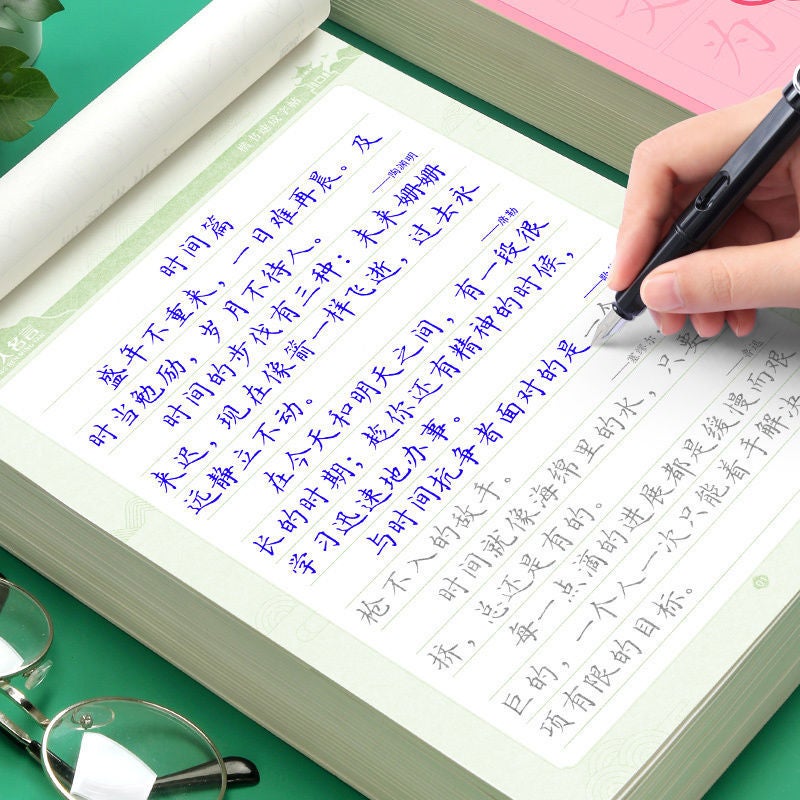 楷书速成字帖
人名言
时间篇
盛年不重来，一日难再晨。及
时当勉励，岁月不待人。 ——陶渊明
时间的步伐有三种：未来姗姗
来迟，现在像箭一样飞逝，过去永
远静立不动。 ——席勒
在今天和明天之间，有一段很
长的时期；趁你还有精神的时候，
学习迅速地办事。 ——歌
与时间抗争者面对的是一个
枪不入的敌手。 ——塞缪尔
时间就像海绵里的水，只要
挤，总还是有的。 ——鲁迅
每一点滴的进展都是缓慢而艰
巨的，一个人一次只能着手解决
项有限的目标。
为